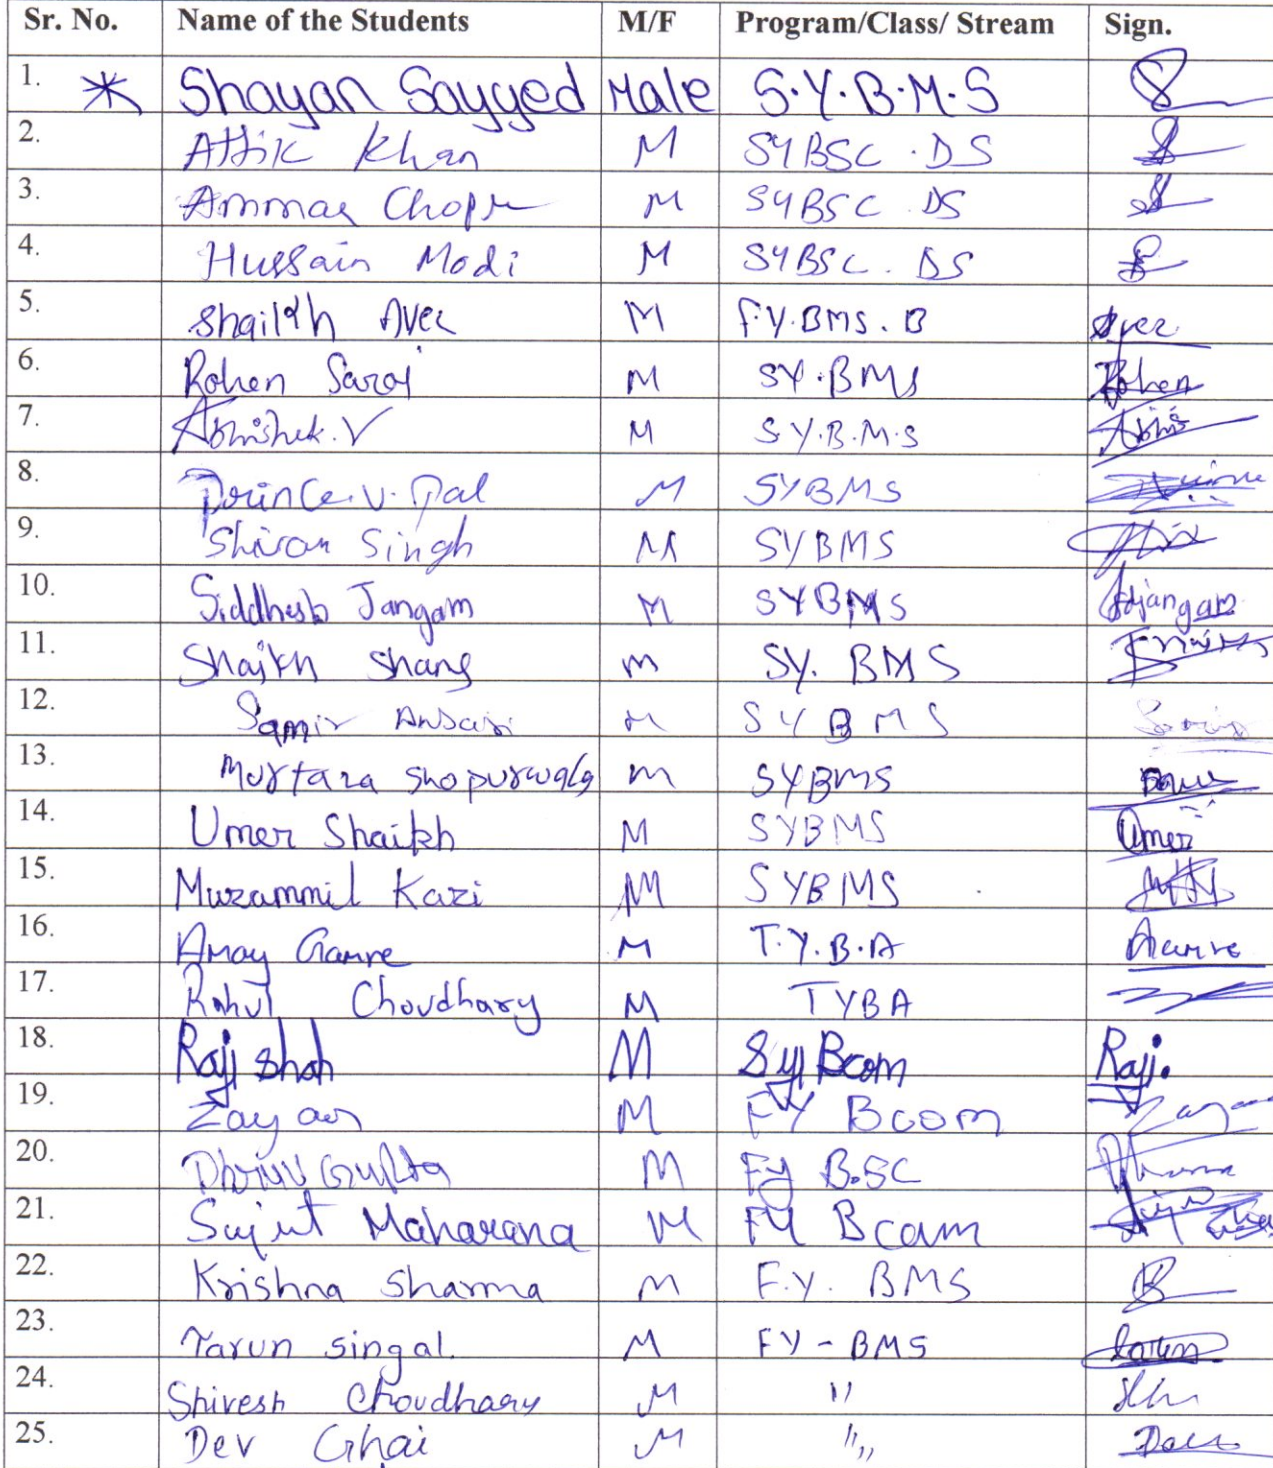 Sr. No. Name of the Students M/F Program/Class/ Stream Sign.
1. * Shayan Sayyed Male S.Y.B.M.S
2. Attik Khan M SYBSC . DS
3. Ammar M SYBSC DS
4. Hussain Modi M SYBSC . DS
5. Shaikh Avez M F.Y.BMS.B Avez
6. Rohen Saroj M SY.BMS Rohen
7. Abhishek.V M S.Y.B.M.S Abhi
8. Prince.V.Pal M SYBMS
9. Shivam Singh M SYBMS
10. Siddhesh Jangam M SYBMS Sdjangam
11. Shaikh M SY. BMS
12. Samir Ansari M SYBMS
13. Murtaza M SYBMS
14. Umer Shaikh M SYBMS Umer
15. Muzammil Kazi M SYBMS
16. Amay Gamre M T.Y.B.A
17. Rahul Choudhary M TYBA
18. Raj shah M Sy Bcom Raj.
19. Zayan M FY Bcom
20. Dhruv Gupta M Fy B.SC
21. Sujit Maharana M FY Bcom
22. Krishna Sharma M F.Y. BMS
23. Tarun singal M FY - BMS
24. Shivesh Choudhaary M "
25. Dev Ghai M "